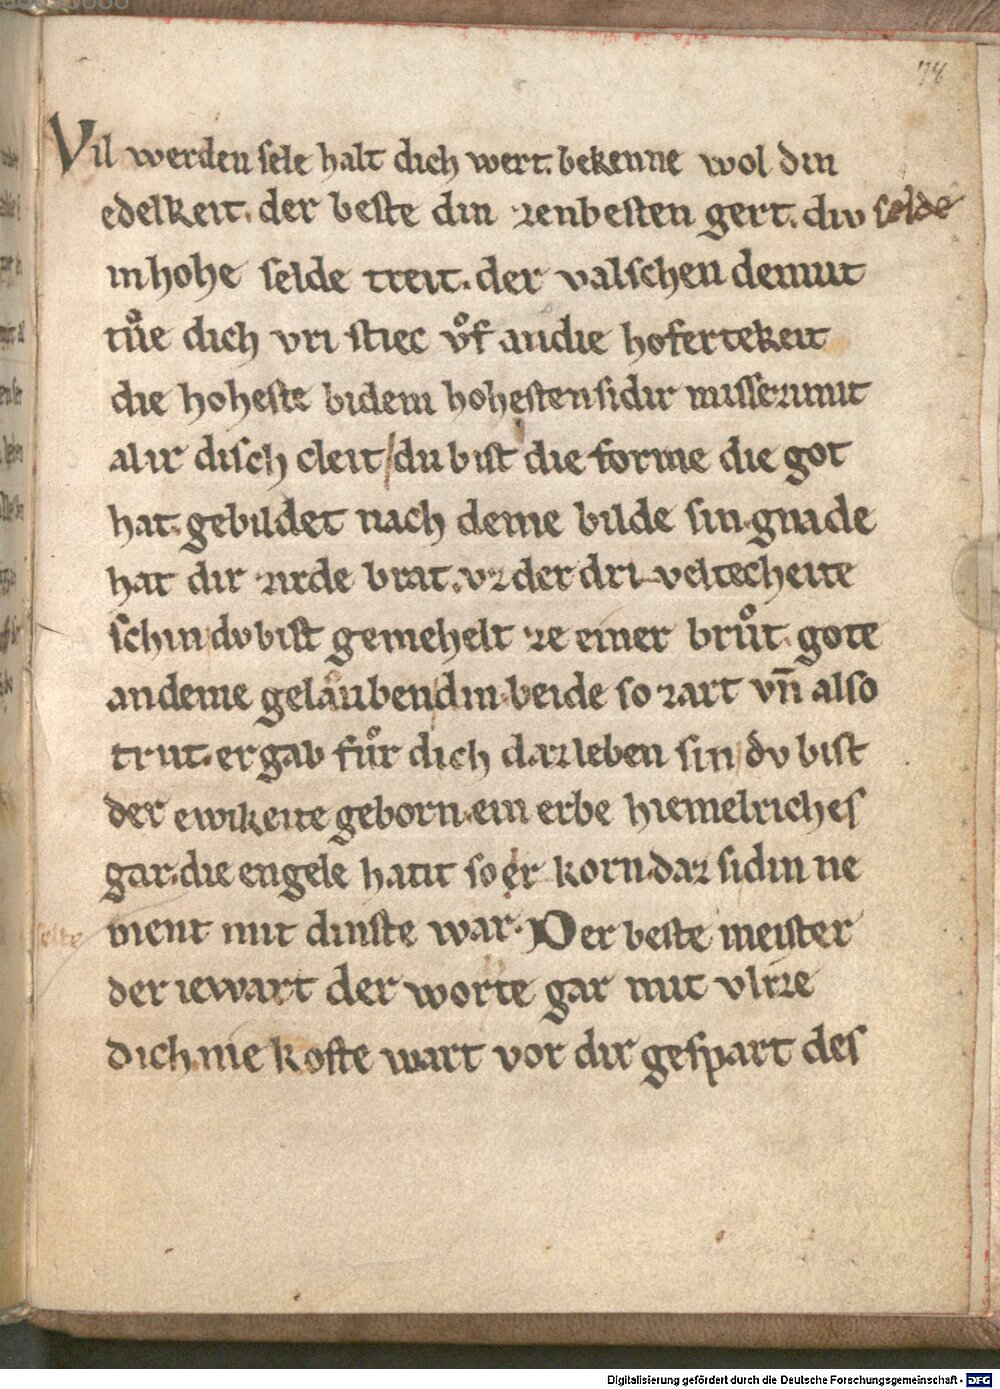 78
Vil werden sele halt dich wert. bekenne wol din
edelkeit. der beste din zenbesten gert. div selde
in hohe selde treit. der valschen demut
tuͦe dich vri stiec vͦf andie hofertekeit
die hoheste bidem hohesten sidir missezimit
al ir disch cleit / du bist die forme die got
hat gebildet nach deme bilde sin. gnade
hat dir zirde brat. vz der dri veltecheite
schin / dv bist gemehelt ze einer bruͦt. gote
andeme gelauben din. beide so zart vn̄ also
trut. er gab fuͦr dich daz leben sin / dv bist
der ewikeite geborn. ein erbe hiemelriches
gar. die engele hatit so er korn. daz si din ne
ment mit dinste war. Der beste meister
der iewart der worte gar mit vlize
dich. nie koste wart vor dir gespart des
Digitalisierung gefördert durch die Deutsche Forschungsgemeinschaft - DFG